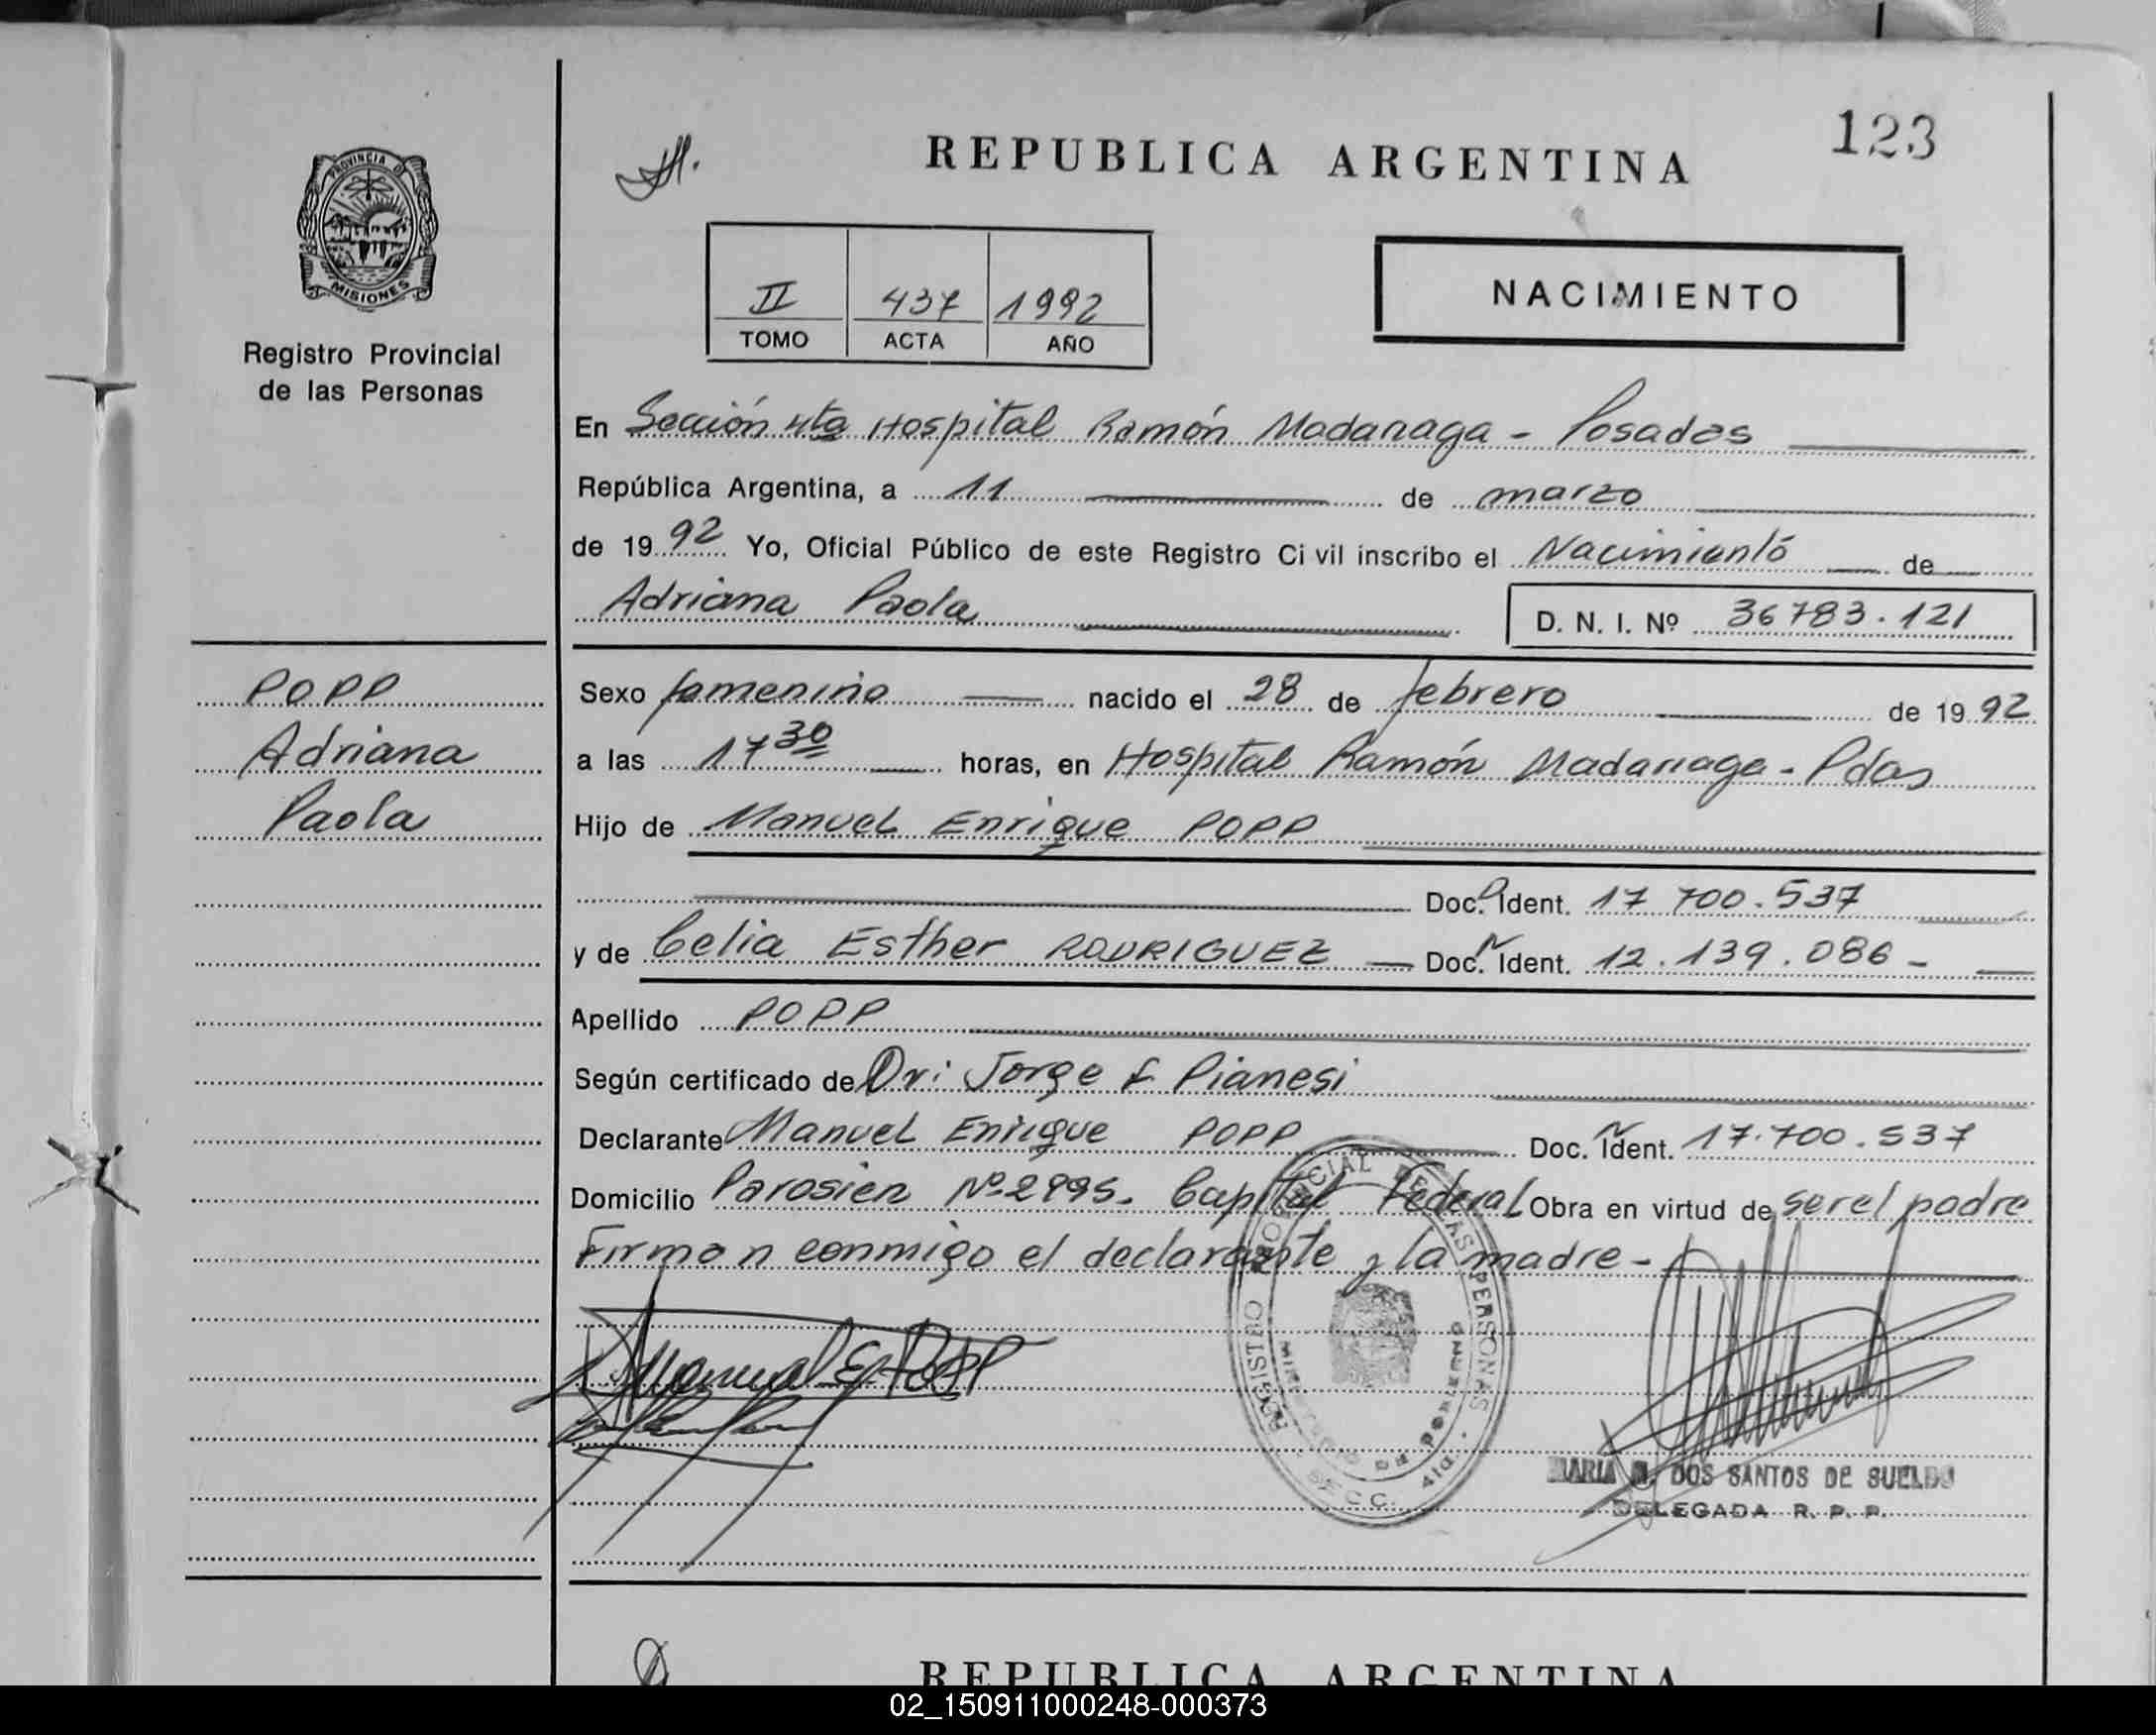 123
REPUBLICA ARGENTINA
PROVINCIA D
MISIONES
Registro Provincial
de las Personas
II 437 1992
TOMO ACTA AÑO
NACIMIENTO
En Sección 4ta Hospital Ramón Madariaga - Posadas
República Argentina, a 11 de marzo
de 1992 Yo, Oficial Público de este Registro Civil inscribo el Nacimiento de
Adriana Paola D. N. I. Nº 36783.121
POPP
Adriana
Paola
Sexo femenino nacido el 28 de febrero de 1992
a las 17 30 horas, en Hospital Ramón Madariaga - Pdas
Hijo de Manuel Enrique POPP
Doc. Ident. 17 700.537
y de Celia Esther RODRIGUEZ Doc. Ident. 12.139.086 -
Apellido POPP
Según certificado de Dr: Jorge F Pianesi
Declarante Manuel Enrique POPP Doc. Ident. 17.700.537
Domicilio Parosien Nº 2995. Capital Federal Obra en virtud de ser el padre
Firman conmigo el declarante y la madre -
Manuel E. POPP
REGISTRO PROVINCIAL DE LAS PERSONAS
SECC. 4ta.
MARIA DOS SANTOS DE SUELDO
DELEGADA R. P. P.
REPUBLICA ARGENTINA
02_150911000248-000373